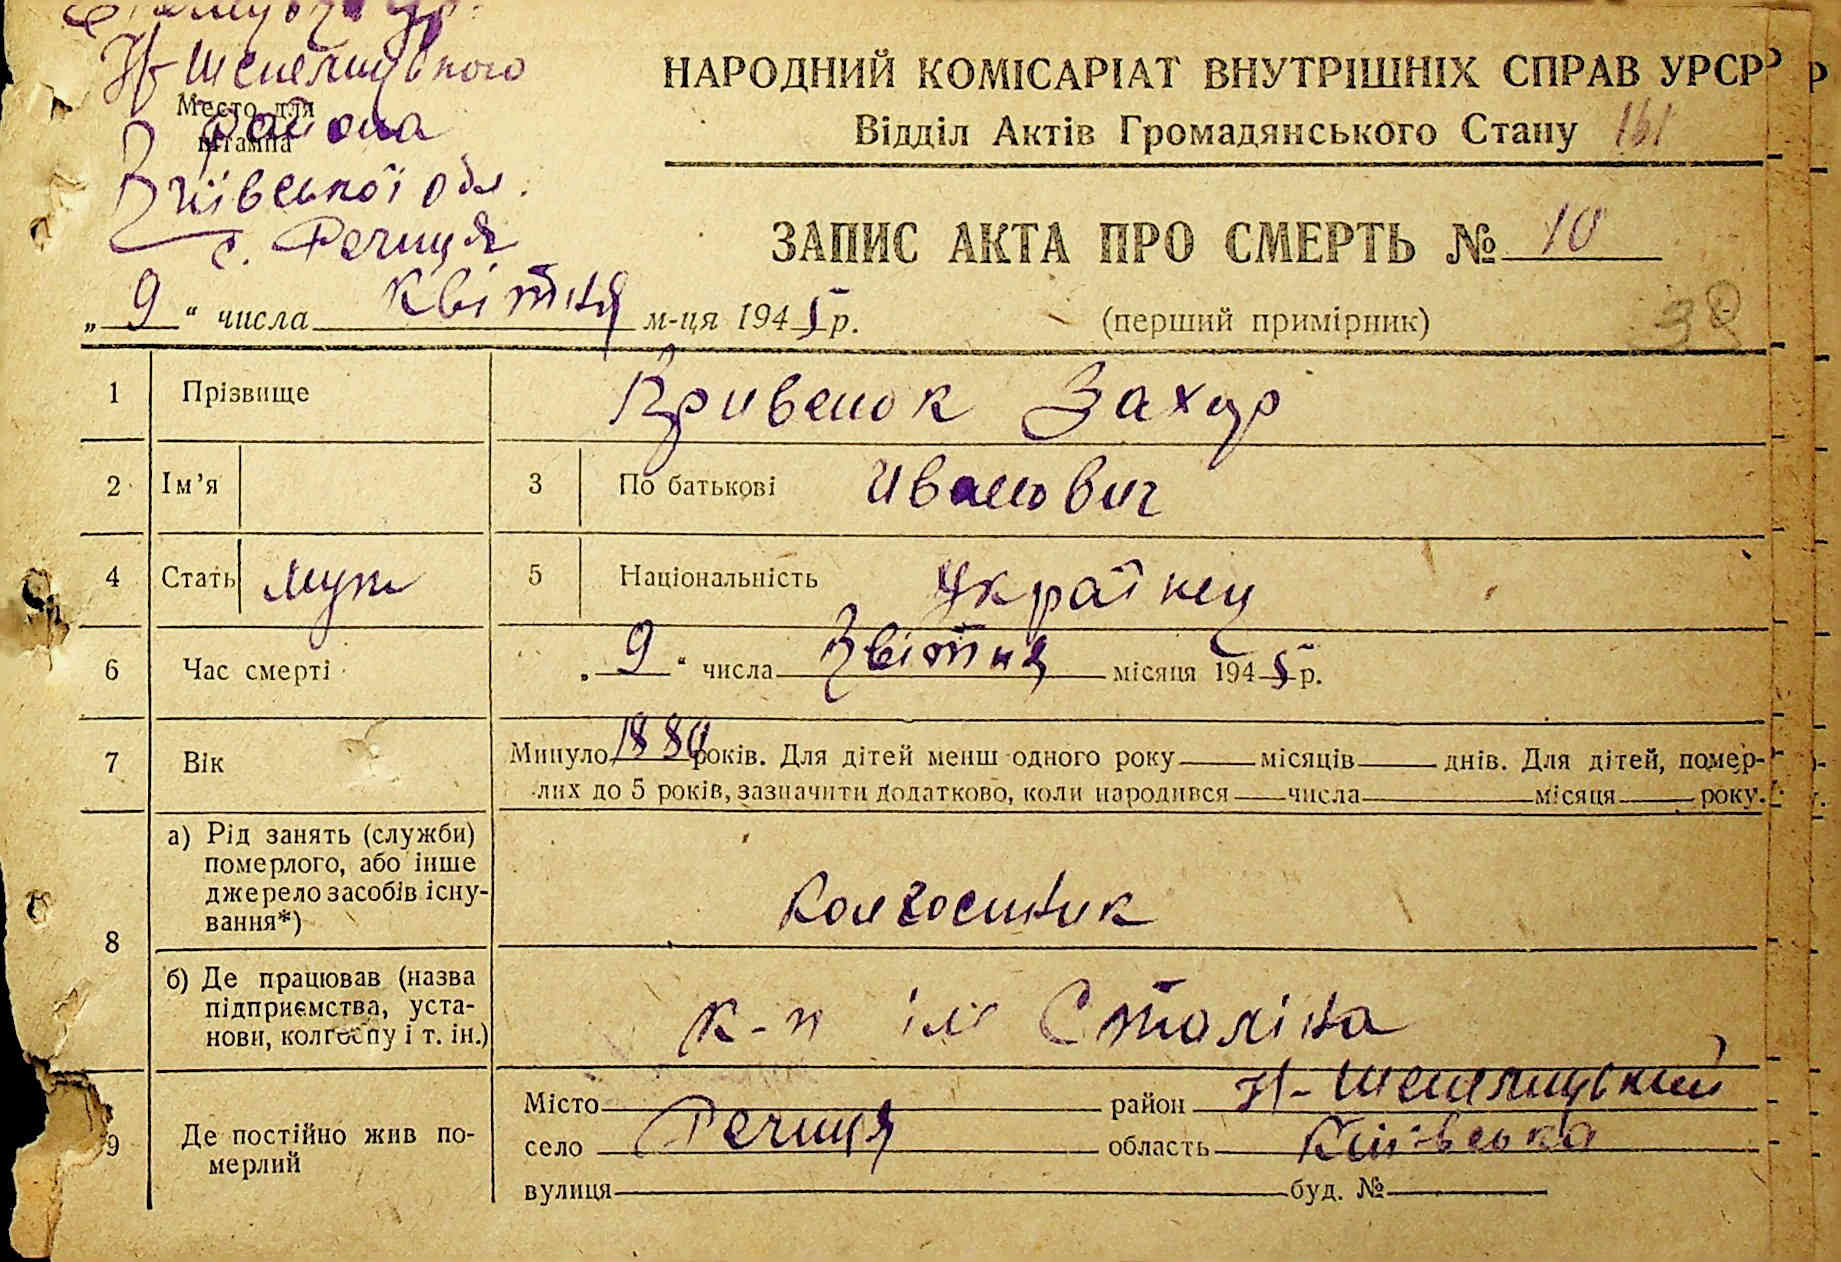 Н-Шепелицького
Место для
района
штампа
Київської обл.
с. Речиця
НАРОДНИЙ КОМІСАРІАТ ВНУТРІШНІХ СПРАВ УРСР
Відділ Актів Громадянського Стану 161
ЗАПИС АКТА ПРО СМЕРТЬ № 10
„ 9 “ числа квітня м-ця 1945 р. (перший примірник) 38
1 Прізвище Кривенок Захар
2 Ім’я 3 По батькові Иванович
4 Стать муж 5 Національність Українец
6 Час смерті „ 9 “ числа Квітня місяця 1945 р.
7 Вік Минуло 1880 років. Для дітей менш одного року місяців днів. Для дітей, помер-
лих до 5 років, зазначити додатково, коли народився числа місяця року.
8 а) Рід занять (служби)
померлого, або інше
джерело засобів існу-
вання*) Колгоспник
б) Де працював (назва
підприємства, уста-
нови, колгоспу і т. ін.) к-п ім Сталіна
9 Де постійно жив по-
мерлий
Місто район Н-Шепелицький
село Речиця область Київська
вулиця буд. №